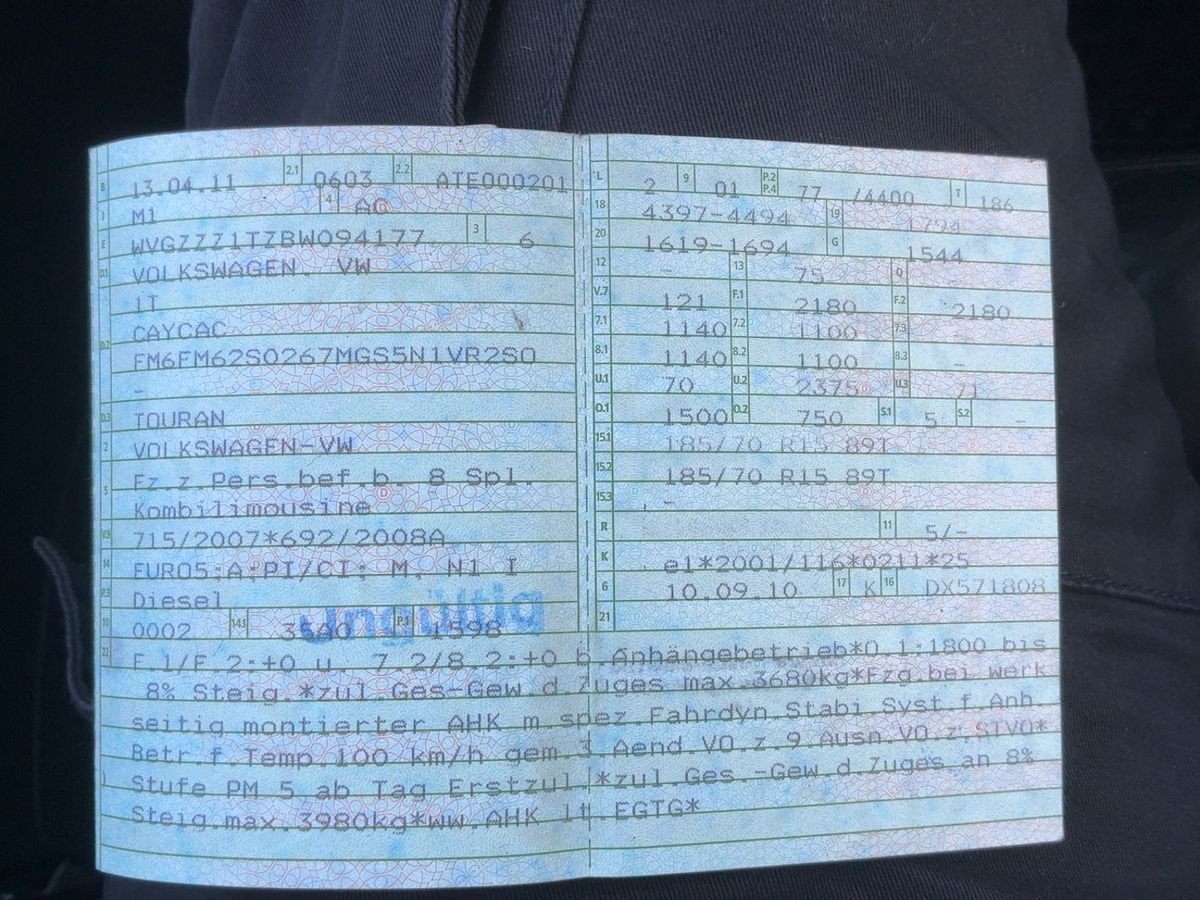 B 13.04.11 2.1 0603 2.2 ATE000201
J M1 4 AC
E WVGZZZ1TZBW094177 3 6
D.1 VOLKSWAGEN, VW
1T
D.2 CAYCAC
FM6FM62S0267MGS5N1VR2S0
-
D.3 TOURAN
2 VOLKSWAGEN-VW
5 Fz.z.Pers.bef.b. 8 Spl.
Kombilimousine
V.9 715/2007*692/2008A
14 EURO5;A;PI/CI; M, N1 I
P.3 Diesel
10 0002 14.1 35A0 P.1 1598
ungültig
L 2 9 01 P.2 P.4 77 /4400 T 186
18 4397-4494 19 1794
20 1619-1694 G 1544
12 - 13 75 Q -
V.7 121 F.1 2180 F.2 2180
7.1 1140 7.2 1100 7.3 -
8.1 1140 8.2 1100 8.3 -
U.1 70 U.2 2375 U.3 71
O.1 1500 O.2 750 S.1 5 S.2 -
15.1 185/70 R15 89T
15.2 185/70 R15 89T
15.3 -
R 11 5/-
K e1*2001/116*0211*25
6 10.09.10 17 K 16 DX571808
21
22 F.1/F.2:+0 u. 7.2/8.2:+0 b.Anhängebetrieb*O.1:1800 bis
8% Steig.*zul.Ges-Gew.d.Zuges max.3680kg*Fzg.bei werk
seitig montierter AHK m.spez.Fahrdyn.Stabi.Syst.f.Anh.
Betr.f.Temp.100 km/h gem.3.Aend.VO.z.9.Ausn.VO.z.STVO*
Stufe PM 5 ab Tag Erstzul.*zul.Ges.-Gew.d.Zuges an 8%
Steig.max.3980kg*ww.AHK lt.EGTG*